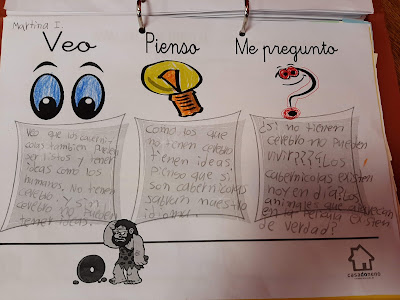 Martina I.
Veo
Pienso
Me pregunto
Veo que los caverni-
colas tambien pueden
ser listos y tener
ideas como los
humanos. No tienen
cerebro. y sin
cerebro no pueden
tener ideas.
Como los que
no tienen cerebro
tienen ideas,
Pienso que si
son cabernicolas
sabran nuestro
idioma.
¿Si no tienen
cerebro no pueden
vivir????¿Los
cabernicolas existen
hoy en dia?¿Los
animales que aparecian
en la pelicula existen
de verdad?